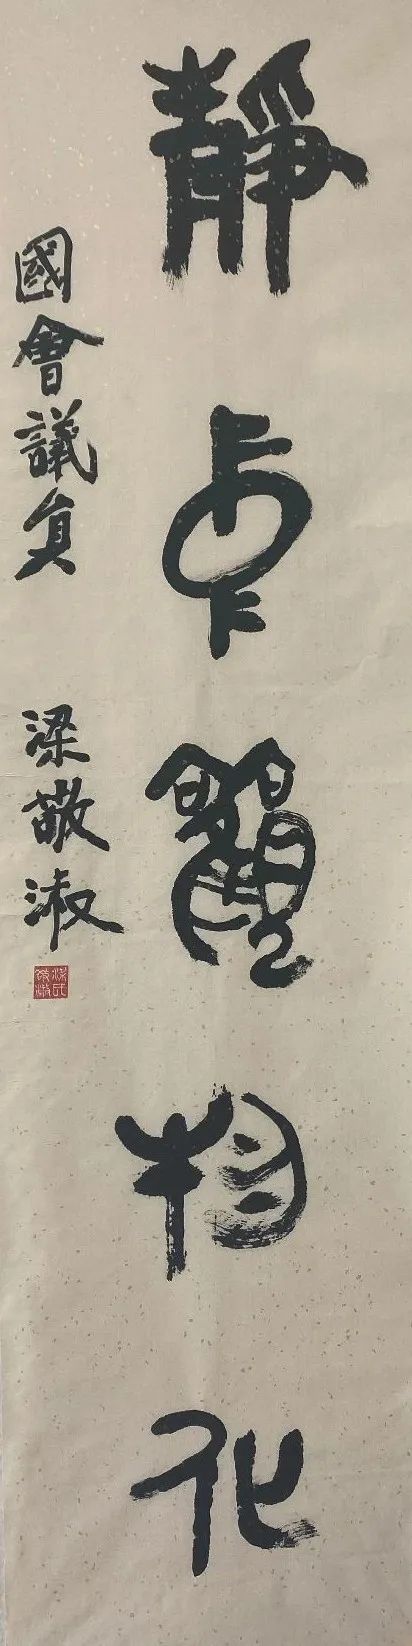 靜中觀物化
國會議員 梁敬淑
梁氏敬淑